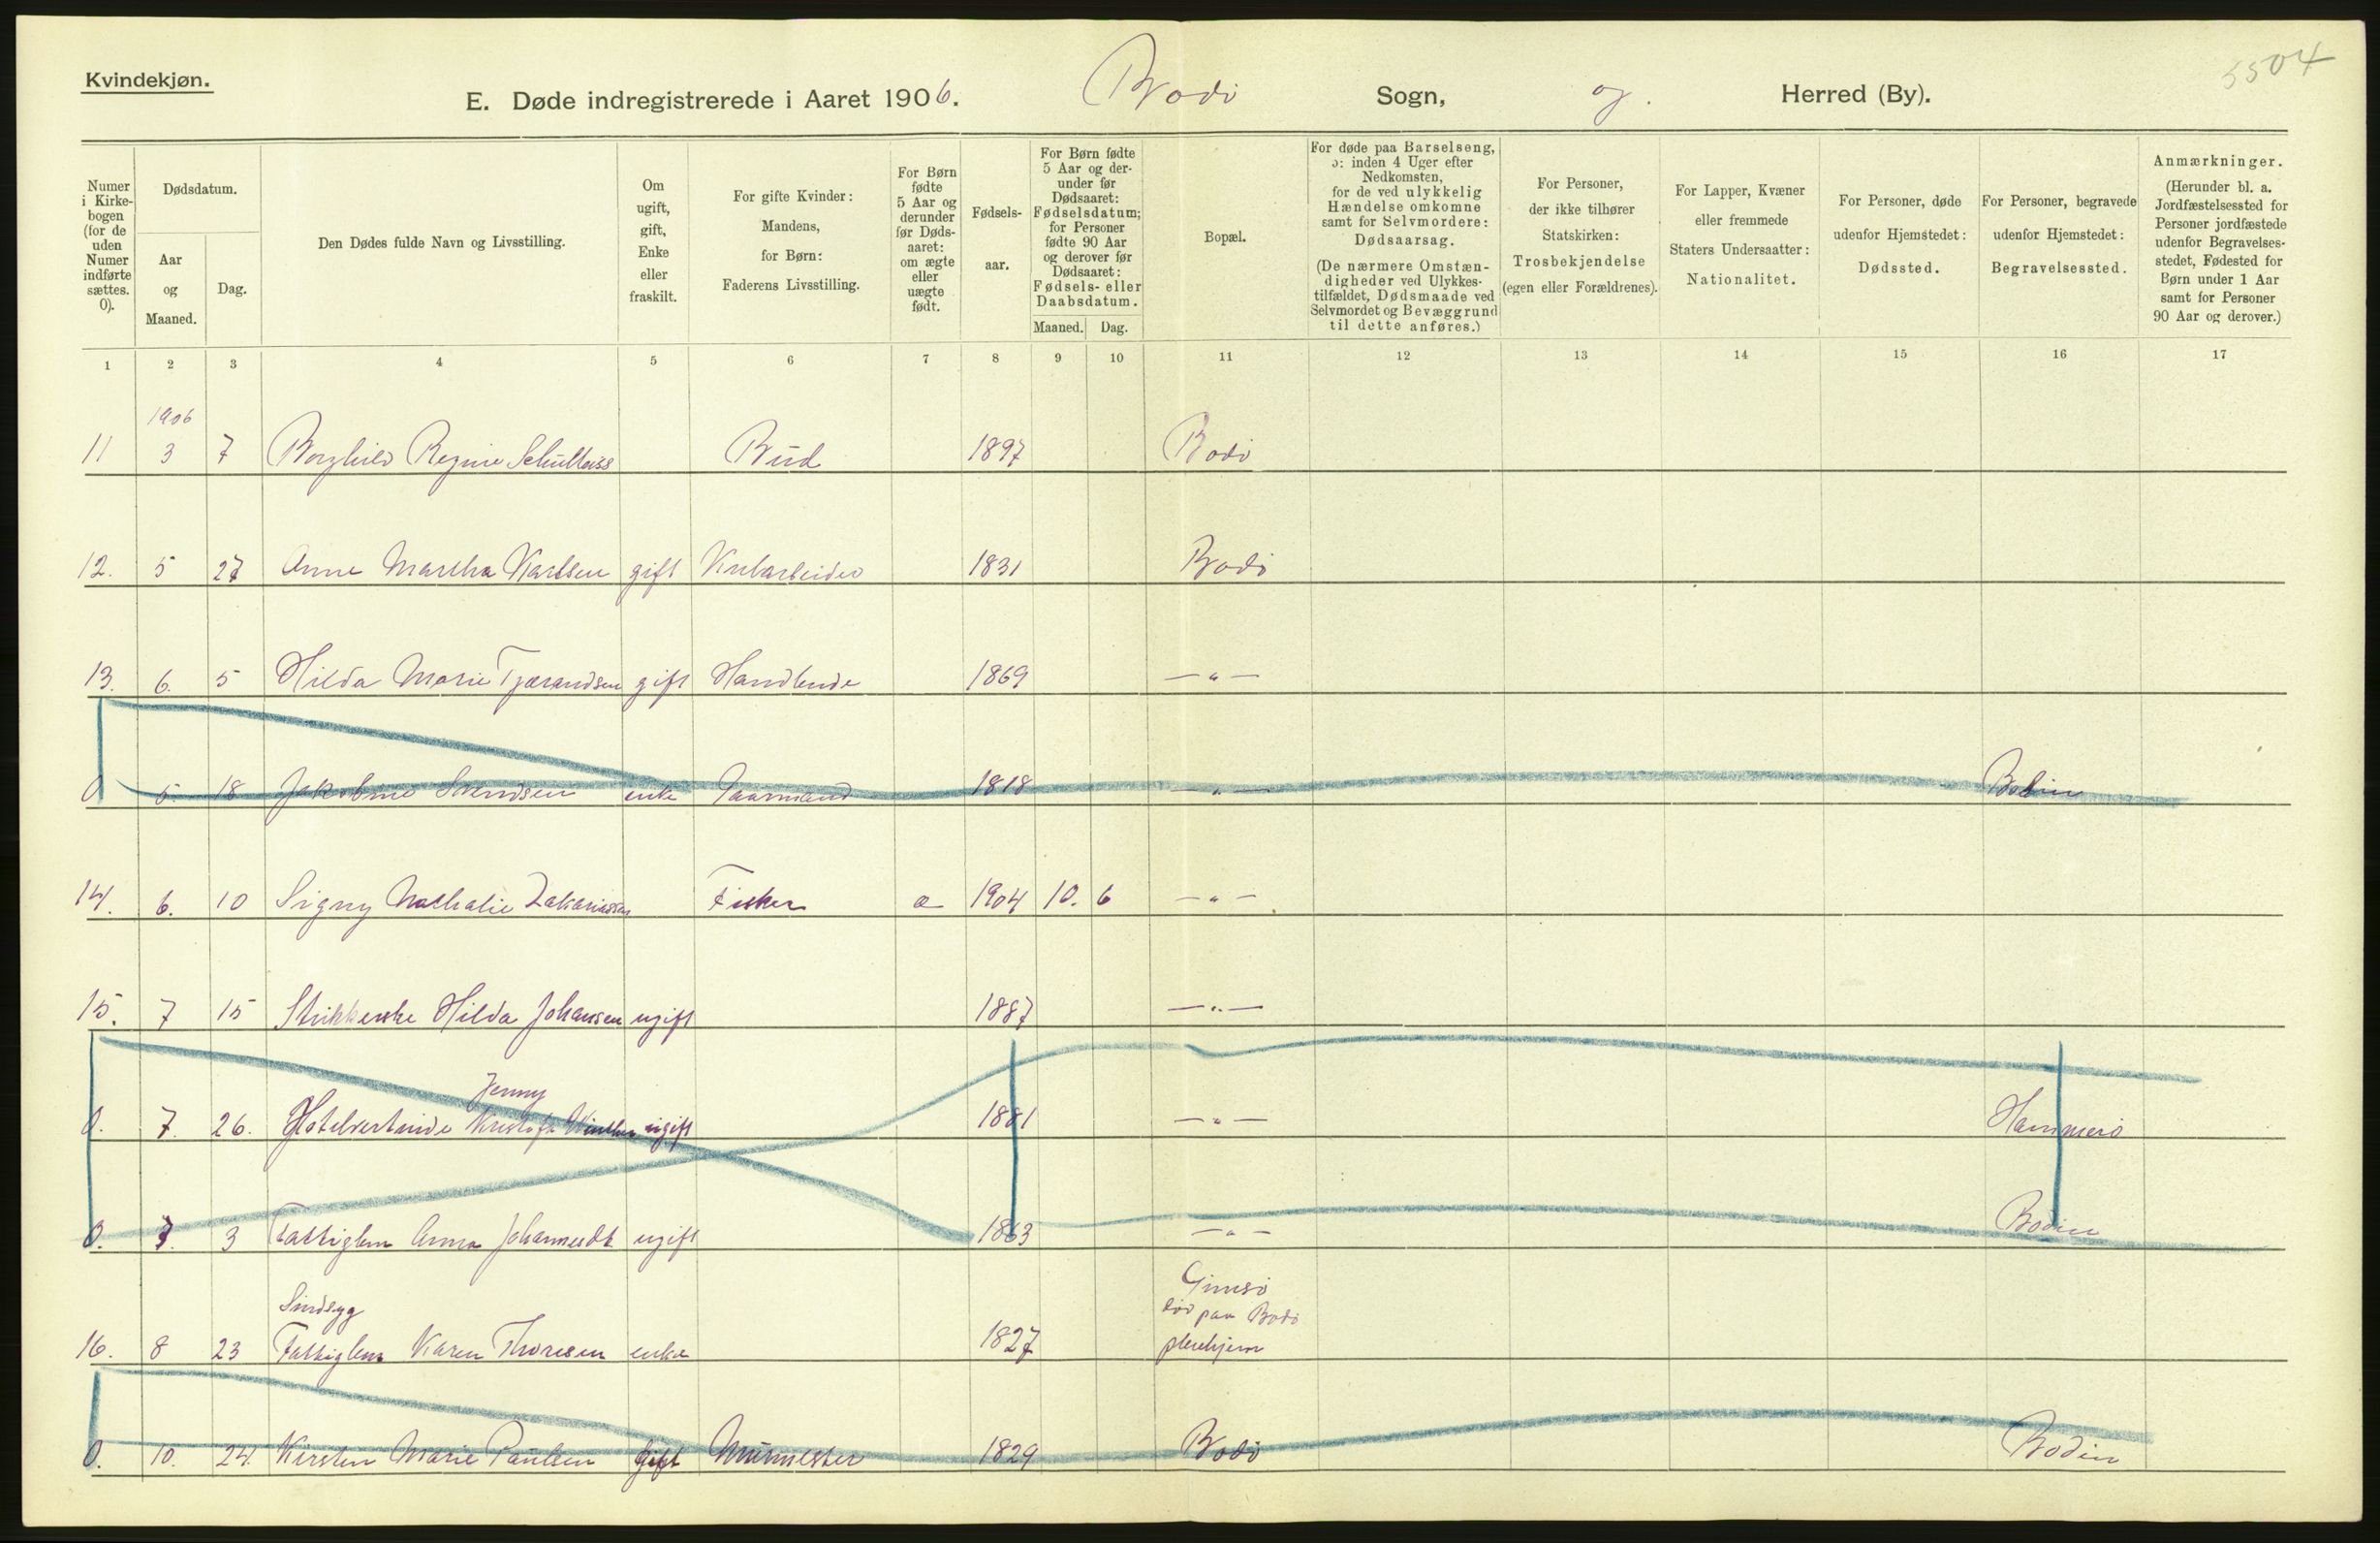 Kvindekjøn.
5504
E. Døde indregistrerede i Aaret 1906. Bodø Sogn, og Herred (By).
Numer i Kirkebogen (for de uden Numer indførte sættes. 0).
Dødsdatum.
Aar og Maaned.
Dag.
Den Dødes fulde Navn og Livsstilling.
Om ugift, gift, Enke eller fraskilt.
For gifte Kvinder: Mandens, for Børn: Faderens Livsstilling.
For Børn fødte 5 Aar og derunder før Dødsaaret: om ægte eller uægte født.
Fødselsaar.
For Børn fødte 5 Aar og derunder før Dødsaaret: Fødselsdatum; for Personer fødte 90 Aar og derover før Dødsaaret: Fødsels- eller Daabsdatum.
Maaned. Dag.
Bopæl.
For døde paa Barselseng, ɔ: inden 4 Uger efter Nedkomsten, for de ved ulykkelig Hændelse omkomne samt for Selvmordere: Dødsaarsag.
(De nærmere Omstændigheder ved Ulykkestilfældet, Dødsmaade ved Selvmordet og Bevæggrund til dette anføres.)
For Personer, der ikke tilhører Statskirken: Trosbekjendelse (egen eller Forældrenes).
For Lapper, Kvæner eller fremmede Staters Undersaatter: Nationalitet.
For Personer, døde udenfor Hjemstedet: Dødssted.
For Personer, begravede udenfor Hjemstedet: Begravelsessted.
Anmærkninger.
(Herunder bl. a. Jordfæstelsessted for Personer jordfæstede udenfor Begravelsesstedet, Fødested for Børn under 1 Aar samt for Personer 90 Aar og derover.)
1 2 3 4 5 6 7 8 9 10 11 12 13 14 15 16 17
1906
11 3 7 Borghild Regine Schultess Bud 1897 Bodø
12. 5 27 Anne Martha Karlsen gift 1831 Bodø
13. 6. 5 Hilda Marie Tjærandsen gift Handlende 1869 —"—
0 5 18 Jakobine Svendsen enke Gaarmand 1818 —"— Bodin
14. 6. 10 Signy Nathalie Zakariassen Fisker æ 1904 10. 6 —"—
15. 7 15 Strikkerske Hilda Johansen ugift 1887 —"—
Jenny
0. 7. 26. Hotelvertinde ugift 1881 —"— Hammerø
0. 3 Fattiglem Anna ugift 1863 —"— Bodin
Sindsyg Gimsø
død paa Bodø
16. 8 23 Fattiglem Karen Thoresen enke 1827 pleiehjem
0. 10. 24. Kirsten Marie Paulsen gift Murmester 1829 Bodø Bodin